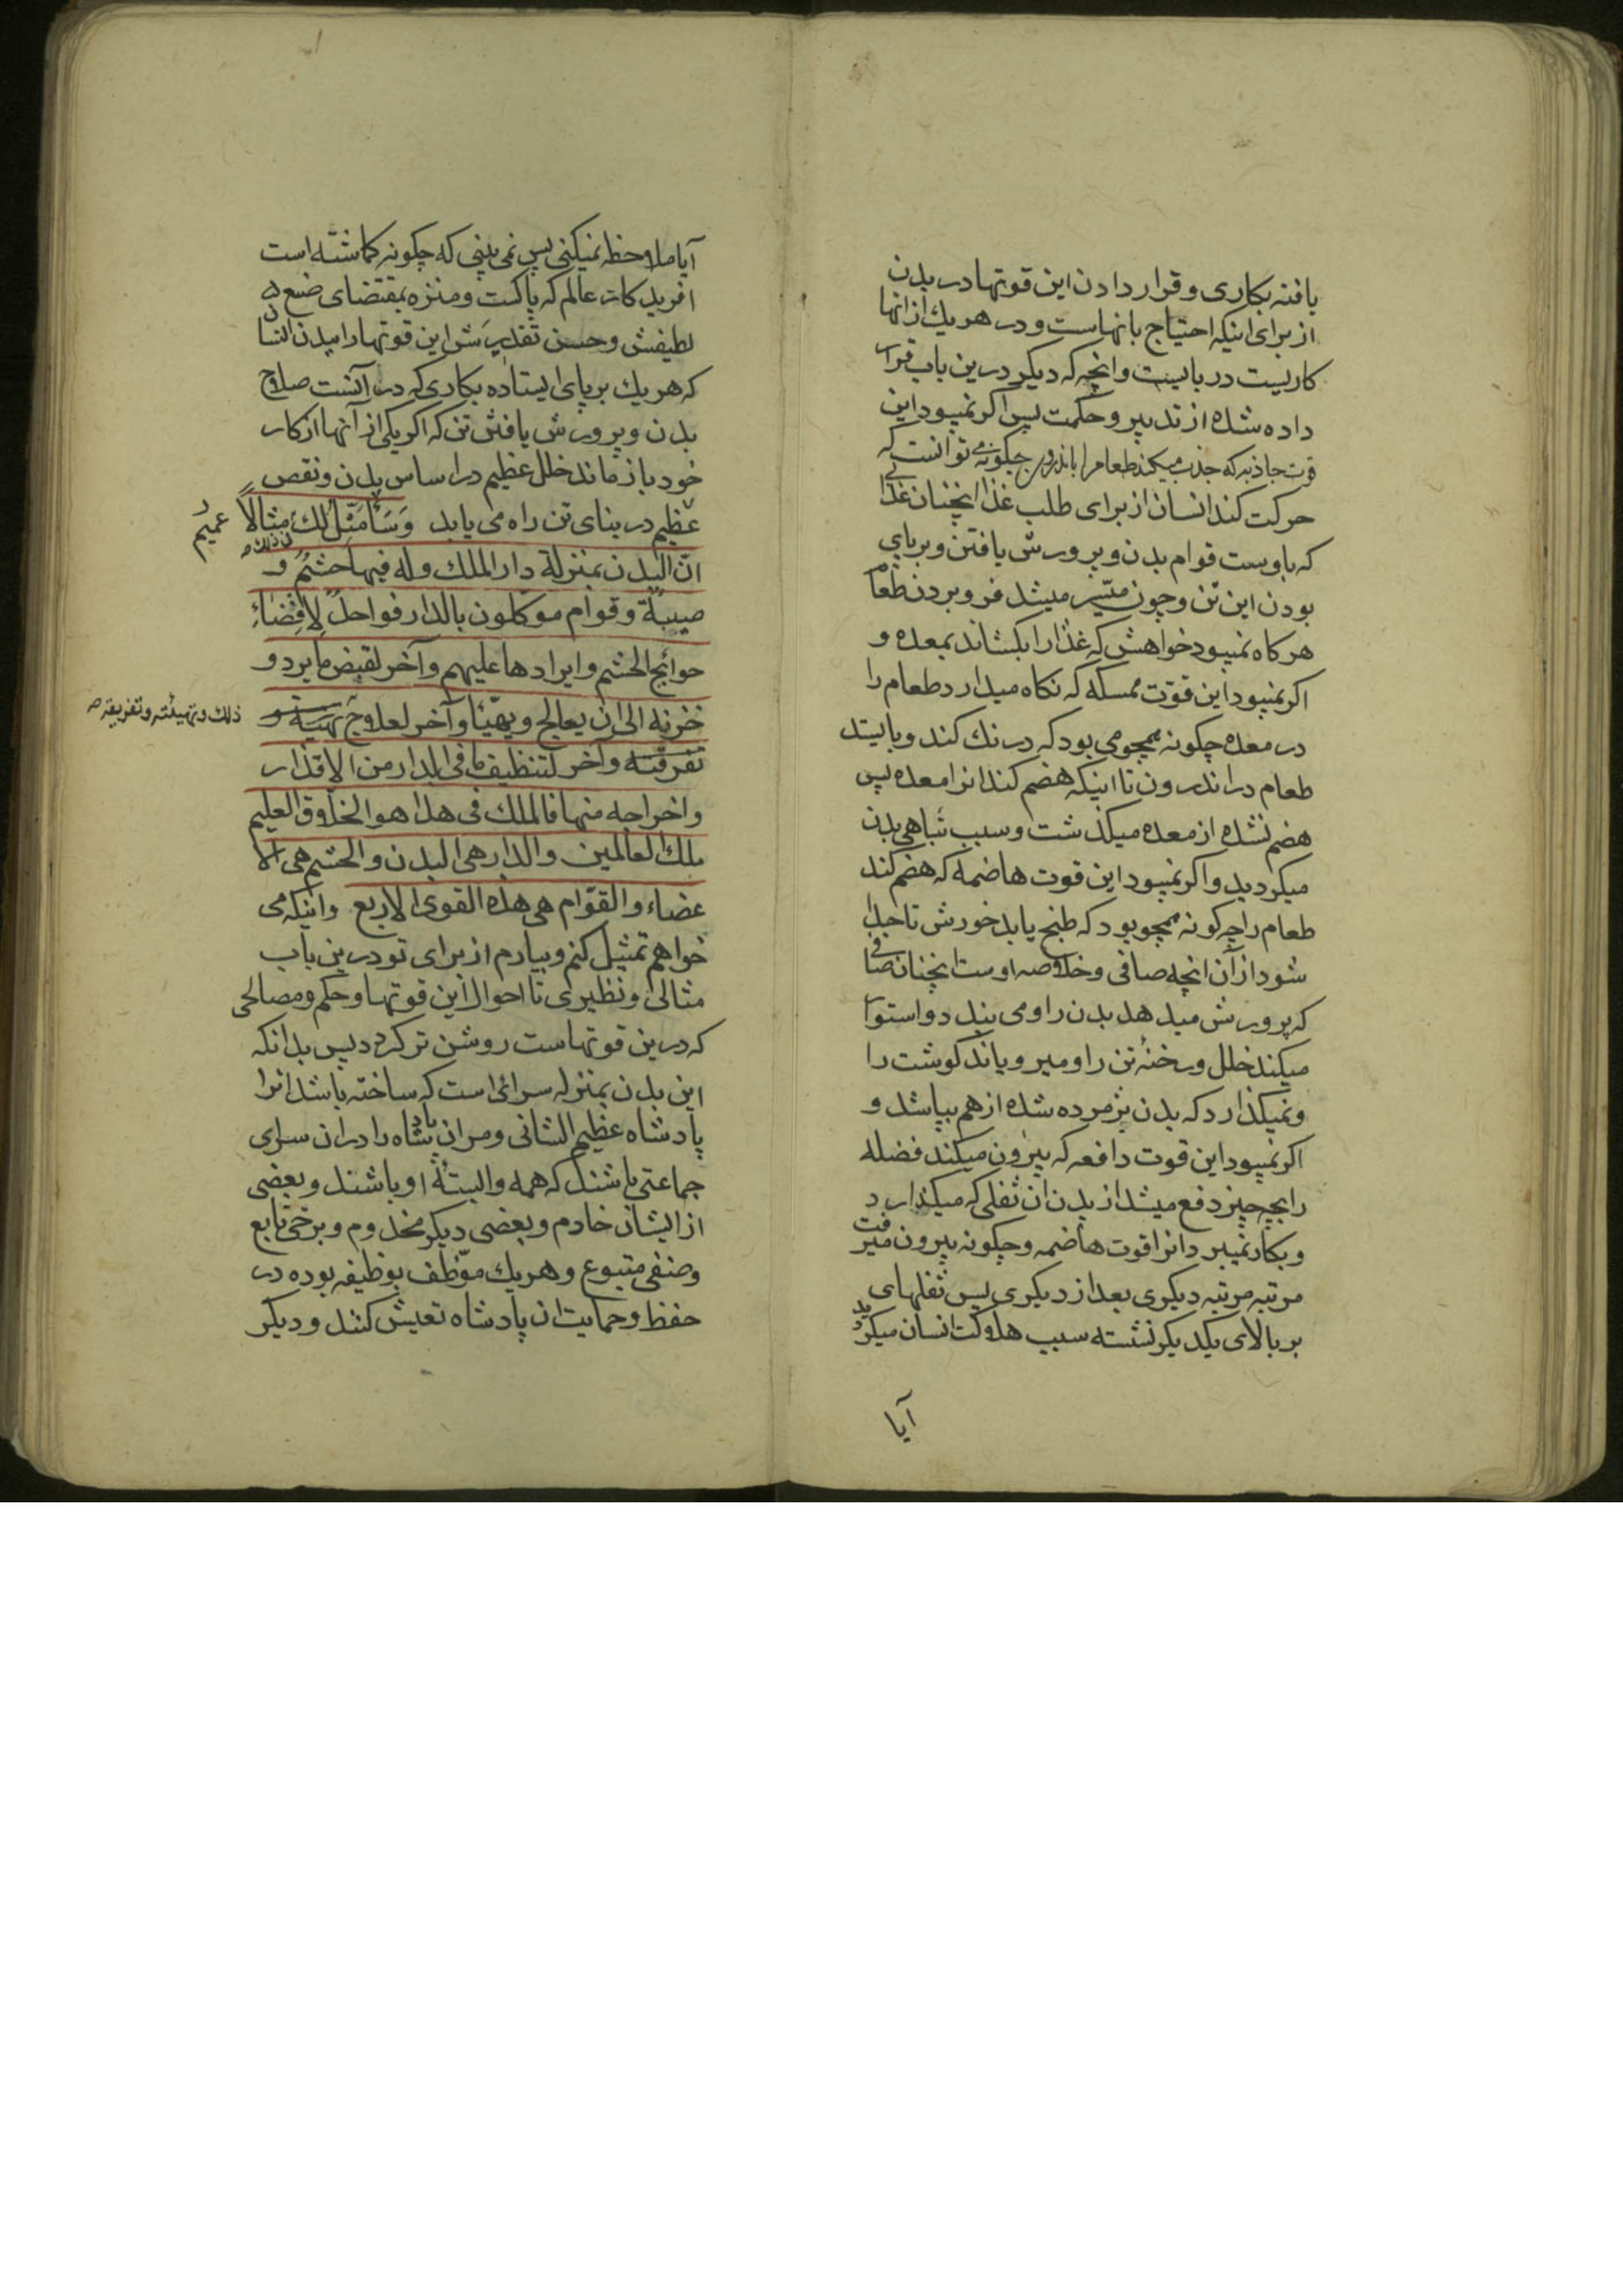 یافته بکاری و قرار دادن این قوتها در بدن
از برای اینکه احتیاج بانهاست و در هر یك از انها
کاریست دربایست و انچه که دیکر درین باب قرار
داده شده از تدبیر و حکمت پس اکر نمیبود این
قوت جاذبه که جذب میکند طعام را باندرون چکونه می توانست که
حرکت کند انسان از برای طلب غذا انچنان غذائی
که باوست قوام بدن و پرورش یافتن و برپای
بودن این تن و چون متیسر میشد فرو بردن طعام
هرکاه نمیبود خواهش که غذا را بکشاند بمعده و
اکر نمیبود این قوّت ممسکه که نکاه میدارد طعام را
در معده چکونه همچو می بود که درنك کند و بایستد
طعام در اندرون تا اینکه هضم کند انرا معده پس
هضم نشده از معده میکذشت و سبب تباهی بدن
میکردید و اکر نمیبود این قوت هاضمه که هضم کند
طعام را چه کونه همچو بود که طبخ یابد خورش تا جدا
شود از آن انچه صافی و خلاصه اوست انچنان صافی
که پرورش میدهد بدن را و می بندد و استوار
میکند خلل و رخنهٔ تن را و میرویاند کوشت را
و نمیکذارد که بدن پژمرده شده از هم بپاشد و
اکر نمیبود این قوت دافعه که بیرون میکند فضله
را بچه چیز دفع میشد از بدن ان ثفلی که میکذارد
و بکار نمیبرد انرا قوت هاضمه و چکونه بیرون میرفت
مرتبه مرتبه دیکری بعد از دیکری پس ثفلهای
بر بالای یکدیکر نشسته سبب هلاکت انسان میکردید
آیا
آیا ملاحظه نمیکنی پس نمی بینی که چکونه کماشته است
افریدکار عالم که پاکست و منزه بمقتضای صنع
لطیفش و حسن تقدیرَش این قوتها را ببدن انسان
که هر یك برپای ایستاده بکاری که در آنست صلاح
بدن و پرورش یافتن تن که اکر یکی از آنها از کار
خود باز ماند خلل عظیم در اساس بدن و نقص
عظیم در بنای تن راه می یابد وَسَأُمَثِّلُ لك مثالاً
عمیم
فی ذلك ص
انّ البدن بمنزلة دار الملك وله فیها حشم و
صبیة وقوام موکلون بالدار فواحدٌ لاقضاء
حوائج الحشم وایرادها علیهم وآخر لقبض ما یرد و
خزنه الی ان یعالج ویهیّئا وآخر لعلاج تهیته و
ذلك وتهیئته وتفریقه ص
تفرقته وآخر لتنظیف ما فی الدار من الاقذار
واخراجه منها فالملك فی هذا هو الخلّاق العلیم
ملك العالمین والدار هی البدن والحشم هی الا
عضاء والقوّام هی هذه القوی الاربع و اینکه می
خواهم تمثیل کنم و بیارم از برای تو درین باب
مثالی و نظیری تا احوال این قوتها و حکم و مصالحی
که درین قوتهاست روشن تر کردد پس بدانکه
این بدن بمنزله سرائی است که ساخته باشد انرا
پادشاه عظیم الشانی و مران پادشاه را دران سرای
جماعتی باشند که همه وابستهٔ او باشند و بعضی
از ایشان خادم و بعضی دیکر مخدوم و برخی تابع
و صنفی متبوع و هر یك موّظف بوظیفه بوده در
حفظ و حمایت ان پادشاه تعیش کنند و دیکر